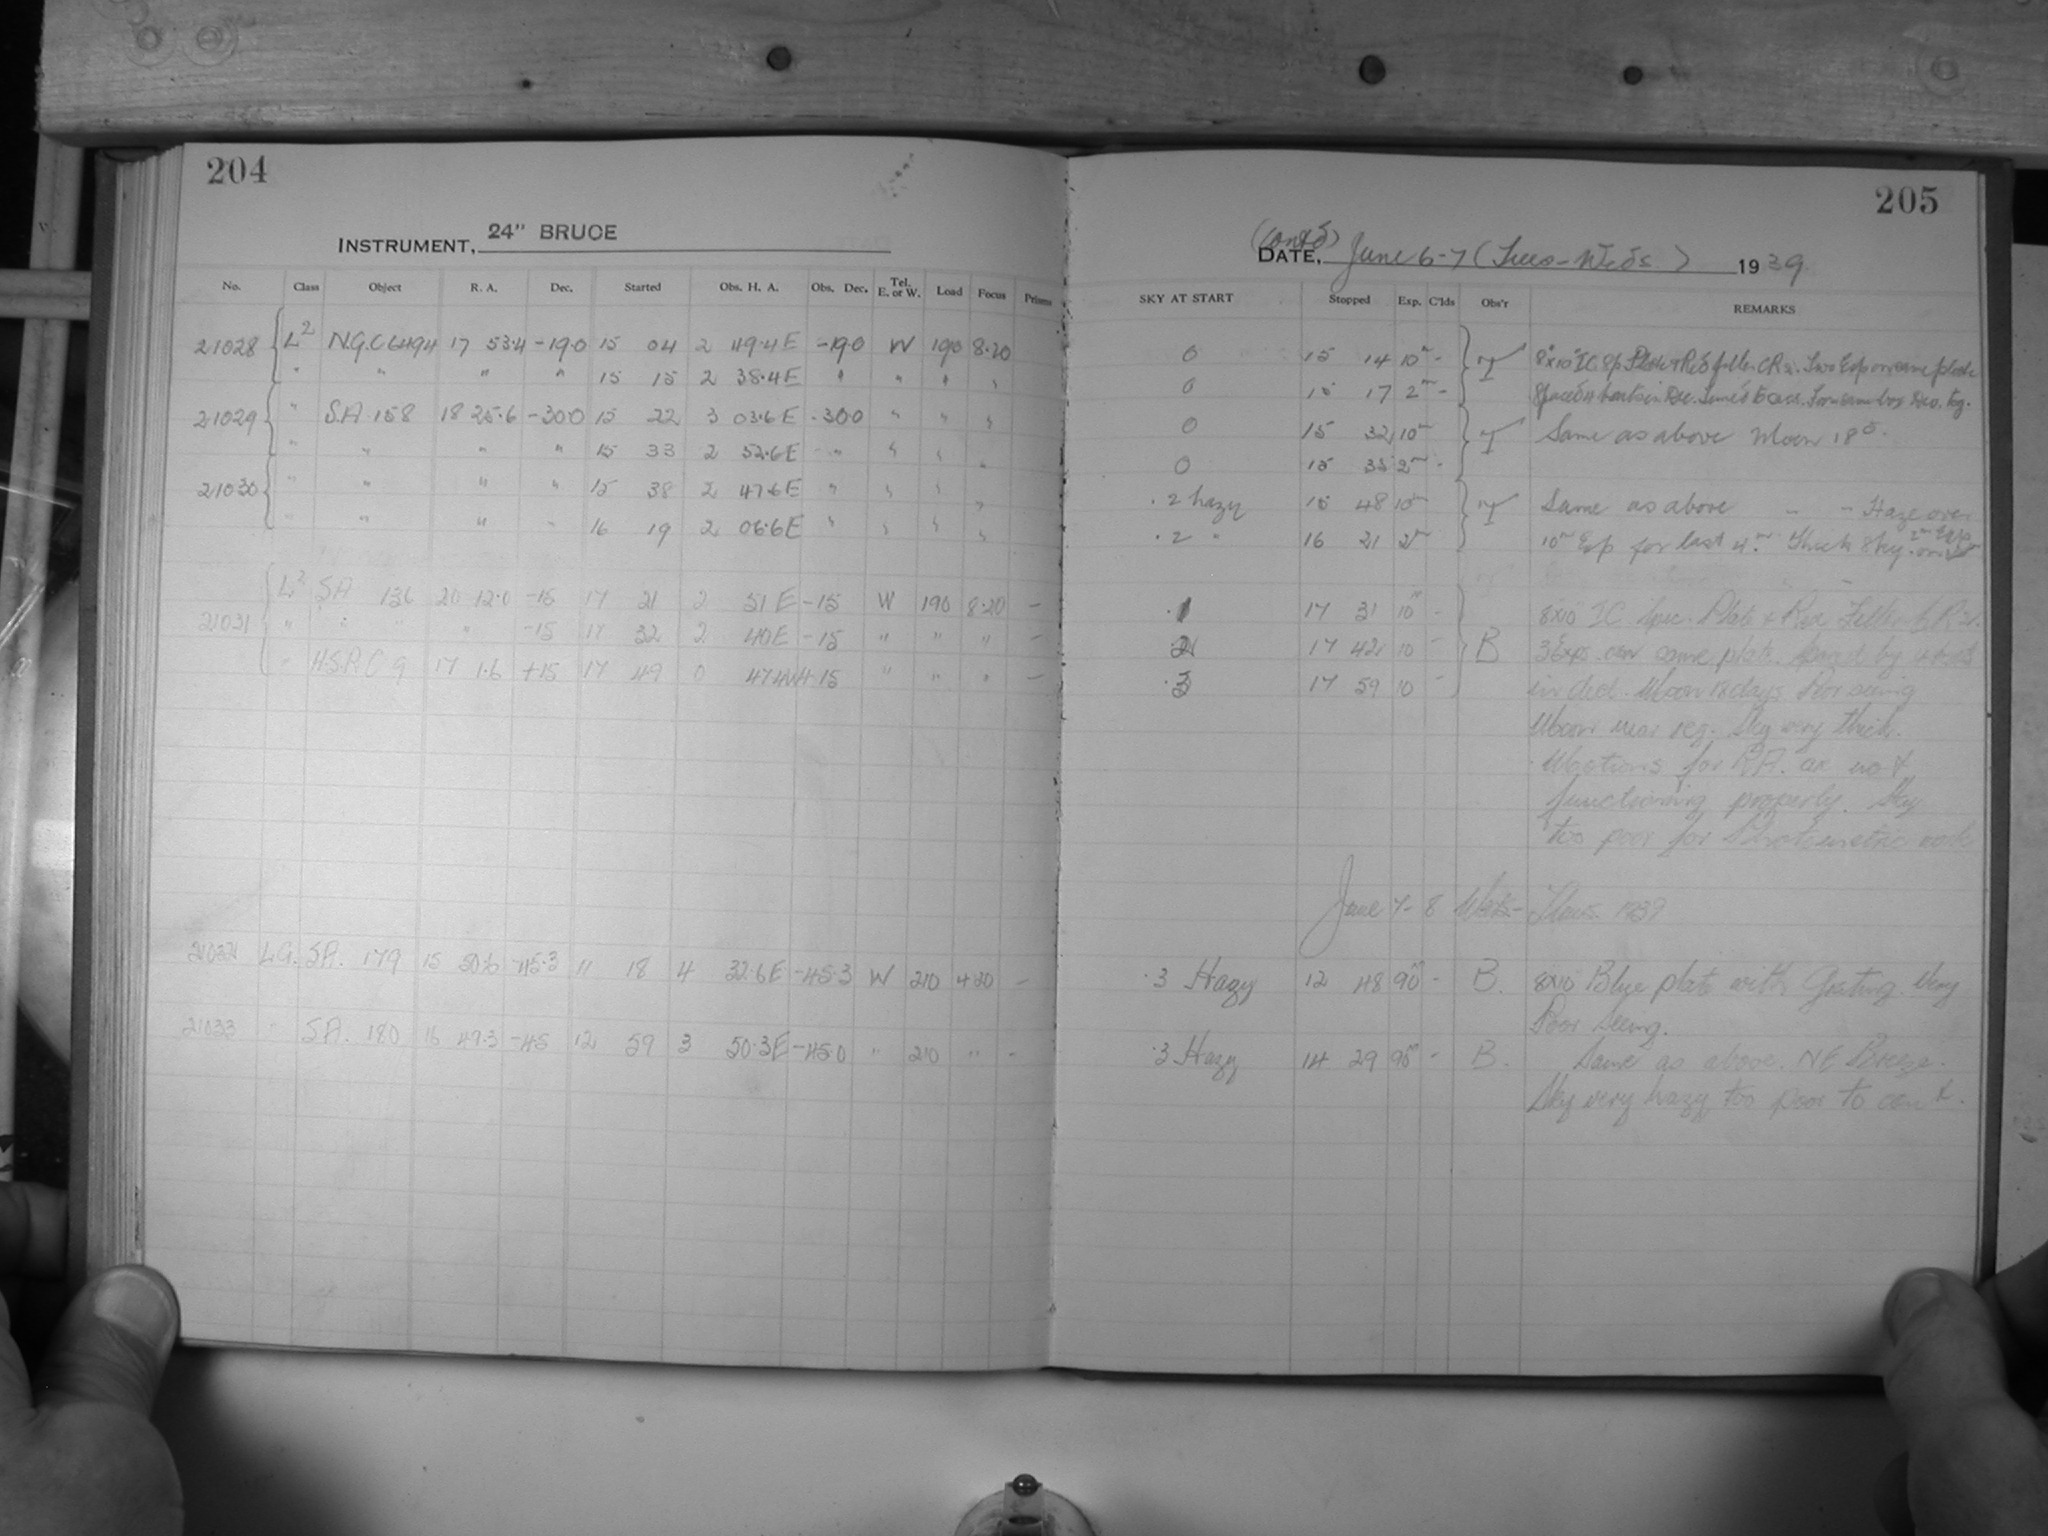 204
INSTRUMENT, 24" BRUCE
No. Class Object R. A. Dec. Started Obs. H. A. Obs. Dec. Tel. E. or W. Load Focus Prisms
21028 L2 N.G.C 6494 17 53.4 -19.0 15 04 2 49.4 E -19.0 W 190 8.20
" " " " 15 15 2 38.4 E " " " "
21029 " S.A 158 18 25.6 -30.0 15 22 3 03.6 E -30.0 " " "
" " " " 15 33 2 52.6 E " " " "
21030 " " " " 15 38 2 47.6 E " " " "
" " " " 16 19 2 06.6 E " " " "
L2 S.A 136 20 12.0 -15 17 21 2 51 E -15 W 190 8.20 -
21031 " " " " -15 17 32 2 40 E -15 " " " -
" H.S.P.C 9 17 1.6 +15 17 49 0 47.4W +15 " " " -
LG. S.A. 179 15 50.6 -45.3 11 18 4 32.6 E -45.3 W 210 4.20 -
21033 " S.A. 180 16 49.3 -45 12 59 3 50.3 E -45.0 " 210 " -
205
(contd)
DATE, June 6-7 (Tues-Weds) 1939
SKY AT START Stopped Exp. C'lds Obs'r REMARKS
0 15 14 10m - T 8x10 IC Sp. Plate + Red filter Two Exp on same plate
0 15 17 2m -
0 15 32 10m T Same as above Moon 18d.
0 15 35 2m -
.2 hazy 15 48 10m T Same as above - - Haze over
.2 " 16 21 2m 10m Exp for last 4m. Thick Sky
.1 17 31 10m - 8x10 IC Spec. Plate + Red Filter
.2 17 42 10 - B 3 Exps. on same plate. Spaced by
.3 17 59 10 - in decl. Moon 18 days Poor seeing
Moon near reg. Sky very thick.
Motions for R.A. are not
functioning properly. Sky
too poor for Photometric work
June 7-8 Weds-Thurs 1939
.3 Hazy 12 48 90m - B. 8x10 Blue plate with Grating. Very
Poor Seeing.
.3 Hazy 14 29 90m - B. Same as above. NE Breeze.
Sky very hazy too poor to cont.